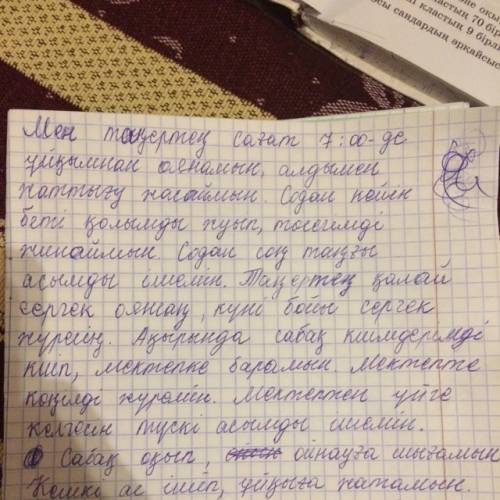 ластың 70 бір
ай кластың 9 бірлі
осы сандардың әрқайсыс
Мен таңертең сағат 7:00-де
ұйқымнан оянамын, алдымен
жаттығу жасаймын. Содан кейін
беті қолымды жуып, төсегімді
жинаймын. Содан соң таңғы
асымды ішемін. Таңертең қалай
сергек оянсаң, күні бойы сергек
жүресің. Ақырында сабақ киімдерімді
киіп, мектепке барамын. Мектепте
көңілді жүремін. Мектептен үйге
келгесін түскі асымды ішемін.
Сабақ оқып, ойнауға шығамын
Кешкі ас ішіп, ұйқыға жатамын.